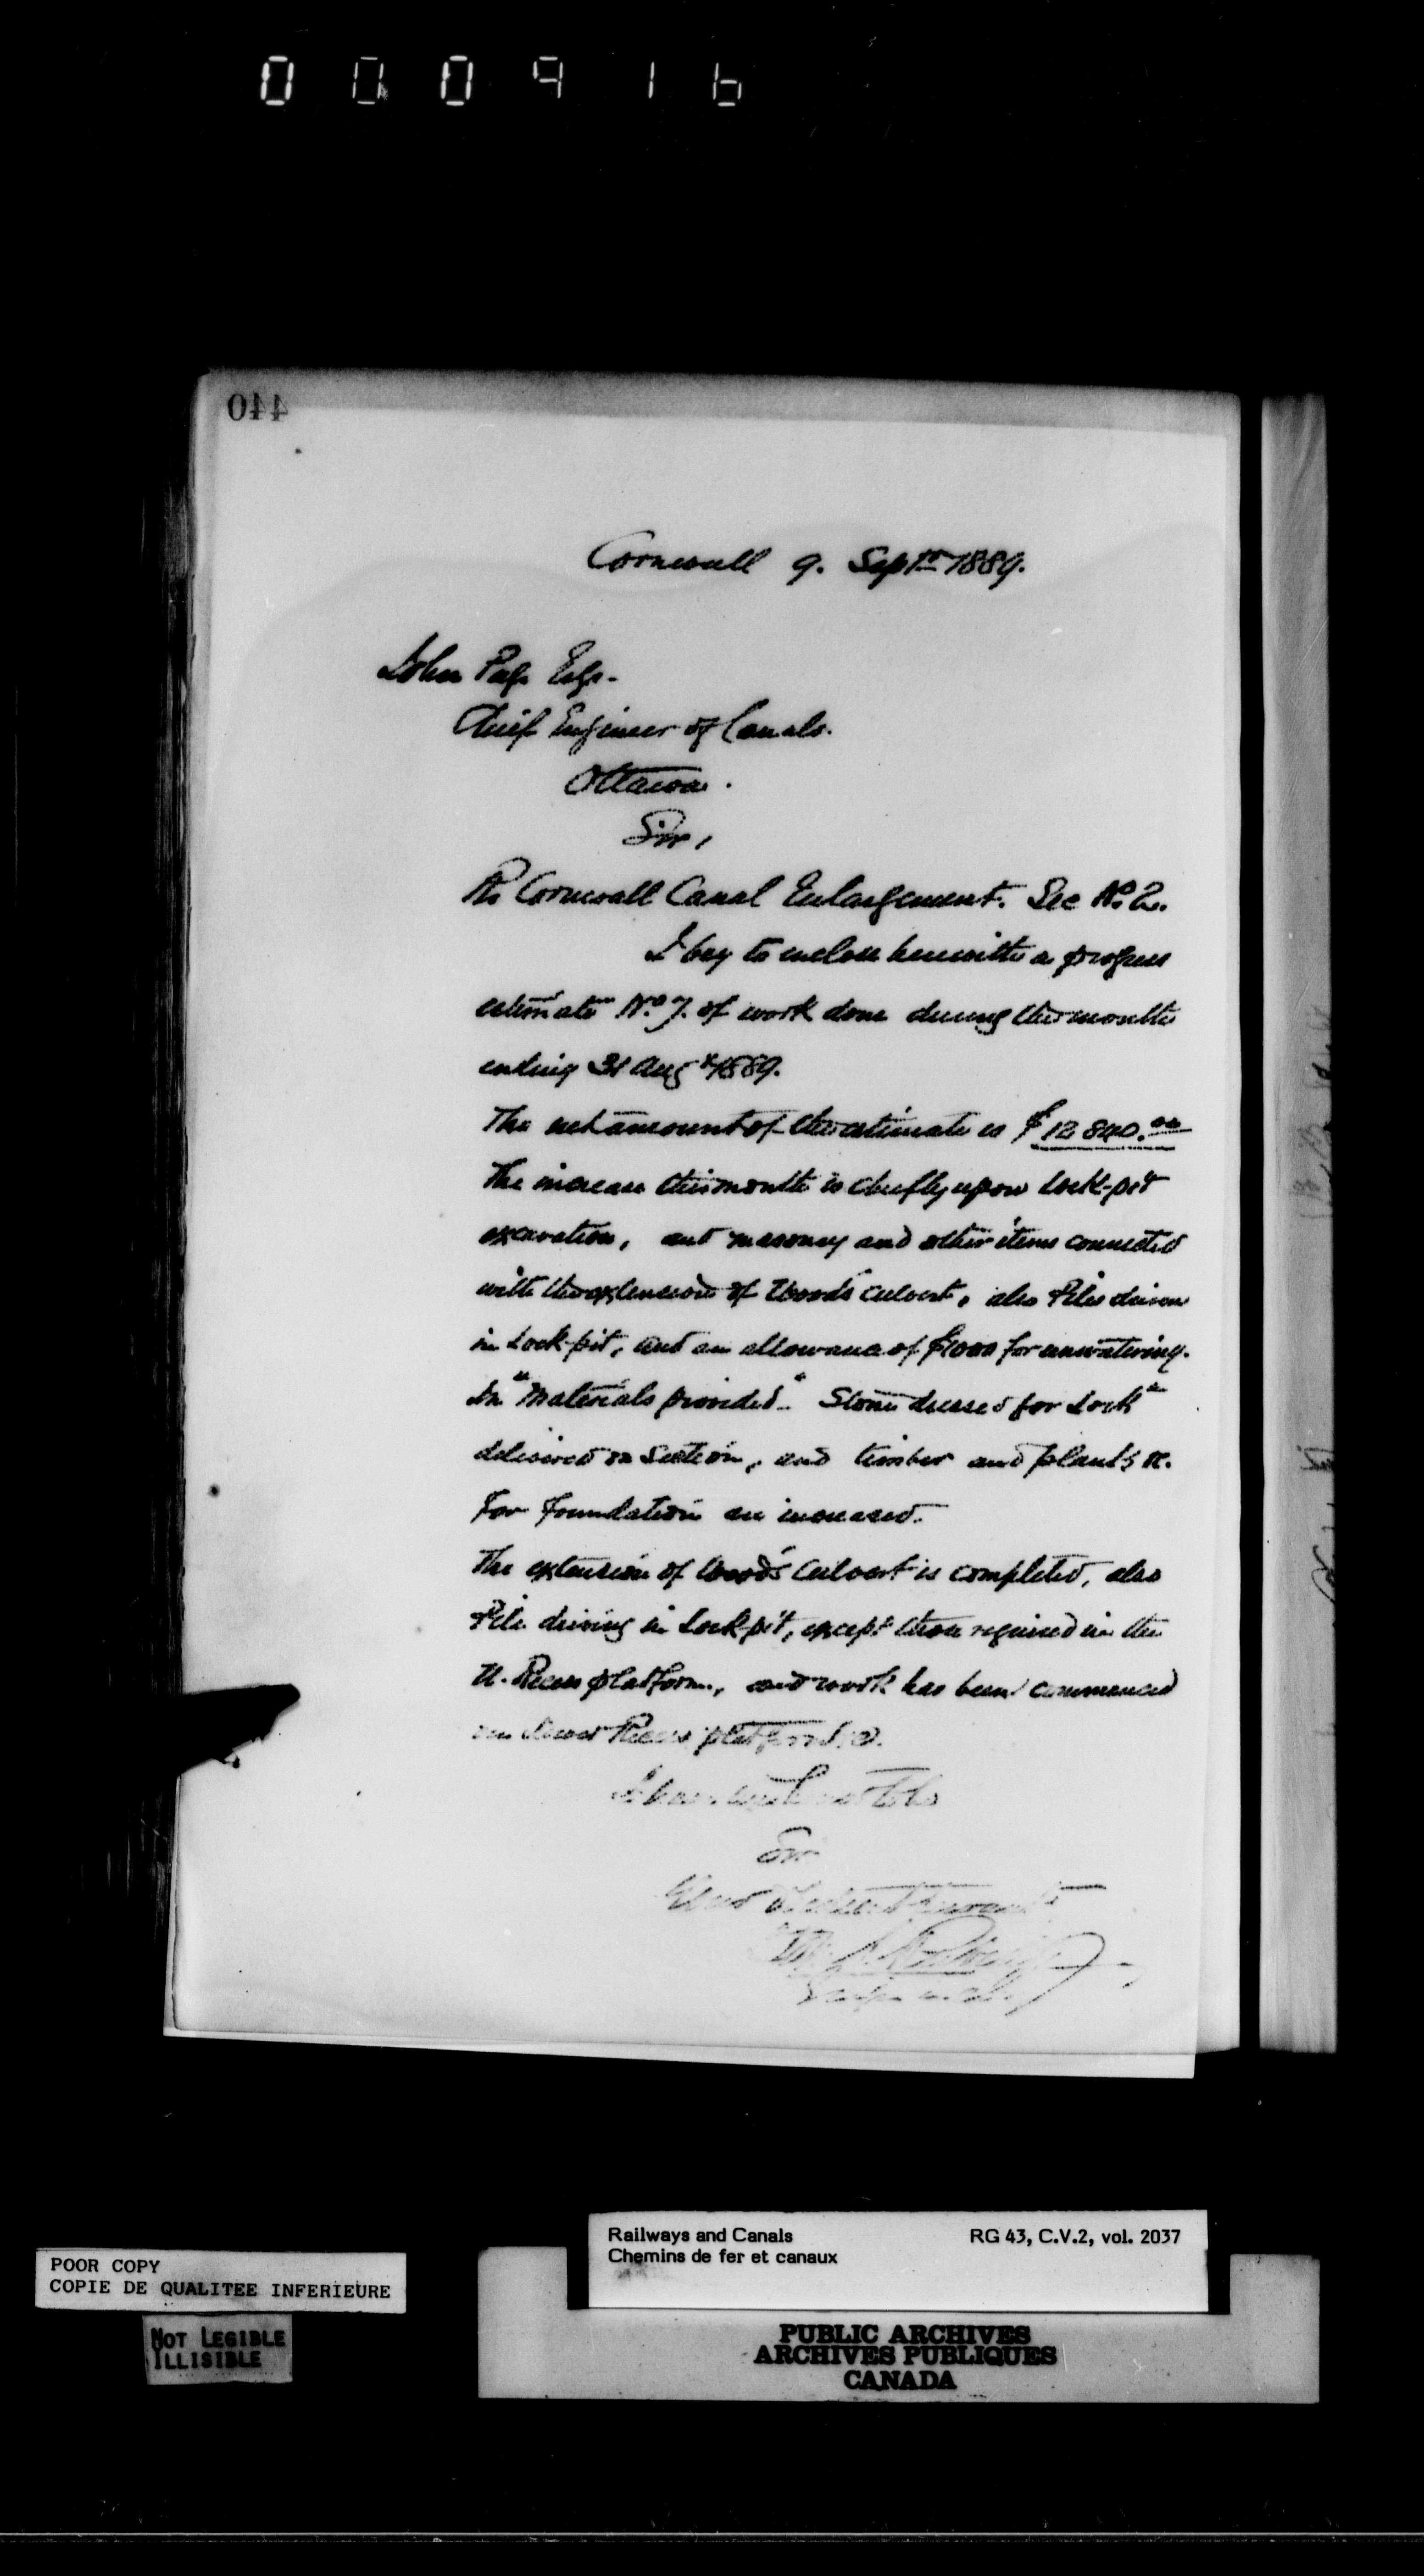 000916
440
Cornwall 9. Sept. 1889.
John Page Esqr.
Chief Engineer of Canals.
Ottawa.
Sir,
Re Cornwall Canal Enlargement. Sec No. 2.
I beg to enclose herewith a progress
estimate No. 7. of work done during the month
ending 31 Augt 1889.
The net amount of the estimate is $12 840.00
The increase this month is chiefly upon lock-pit
excavation, and masonry and other items connected
with the extension of Woods' culvert, also Piles driven
in Lock-pit, and an allowance of $1000 for unwatering.
In "Materials provided" "Stone dressed for Lock"
delivered on Section, and timber and plank &c.
for foundation are increased.
The extension of Woods' Culvert is completed, also
Pile driving in Lock-pit, except those required in the
U. Recess platform, and work has been commenced
on Lower Recess platform
I have to be
Sir
Your Obedient Servant
POOR COPY
COPIE DE QUALITEE INFERIEURE
NOT LEGIBLE
ILLISIBLE
Railways and Canals RG 43, C.V.2, vol. 2037
Chemins de fer et canaux
PUBLIC ARCHIVES
ARCHIVES PUBLIQUES
CANADA